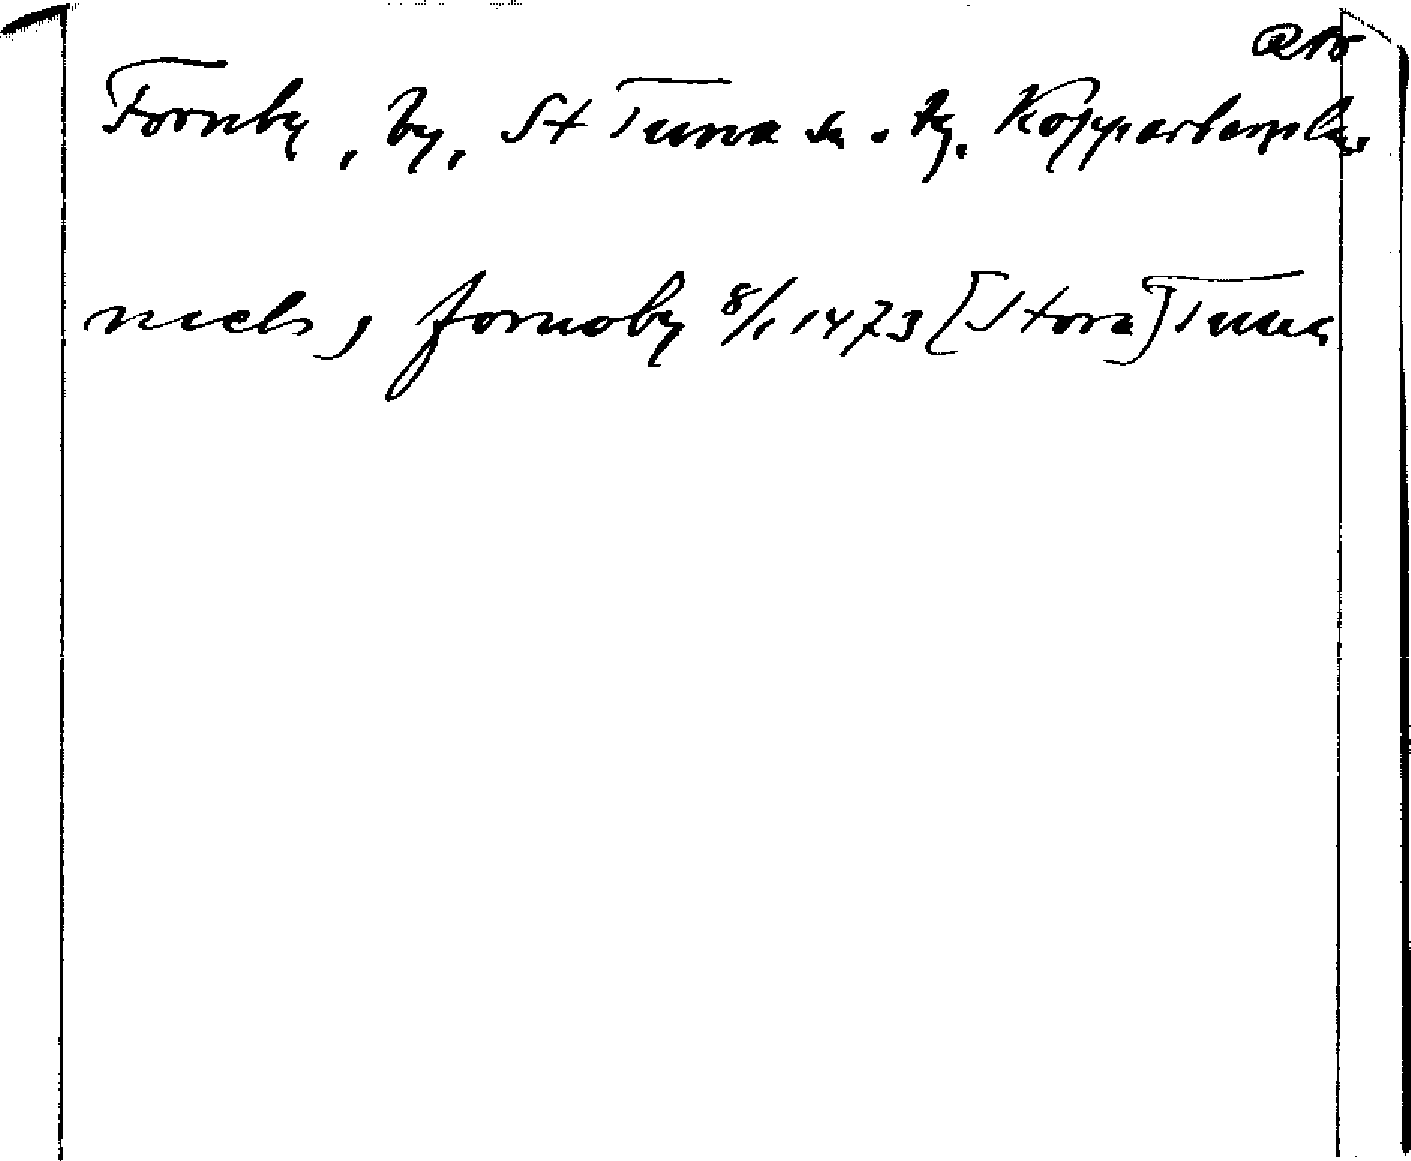 Fornby, by, St Tuna sn. tg. Kopparbergs l.,
fornoby 8/1 1473 [Stora] Tuna